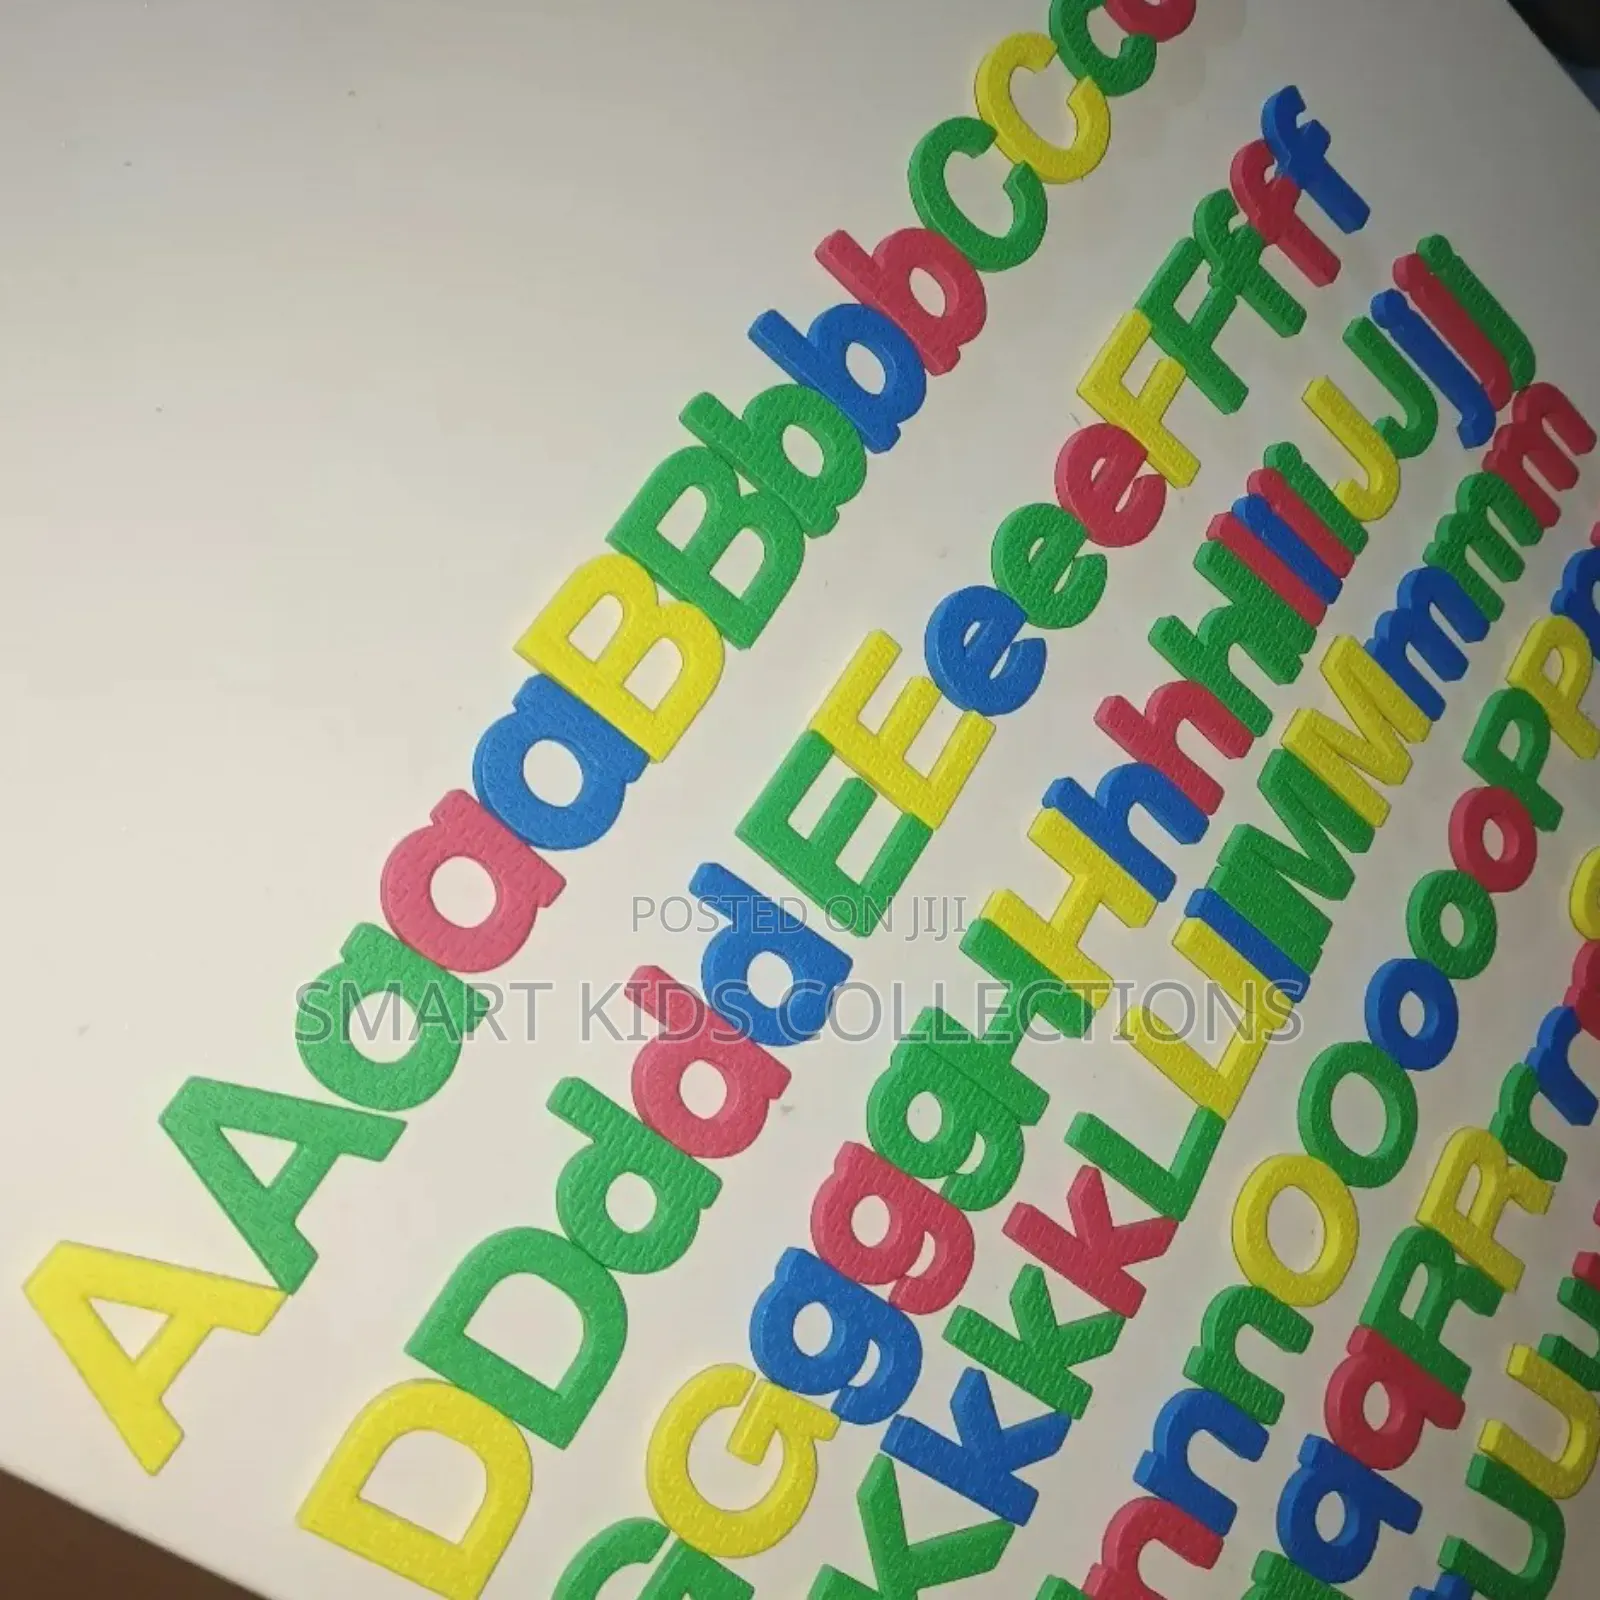 AAaaaBBbbbCCcc
DDdddEEeeeFFfff
GGgggHHhhhIIiiiJJjjj
KkkkLLLlMMmmm
nnnOOoooPP
qqRRrrr
UUuu
POSTED ON JIJI
SMART KIDS COLLECTIONS